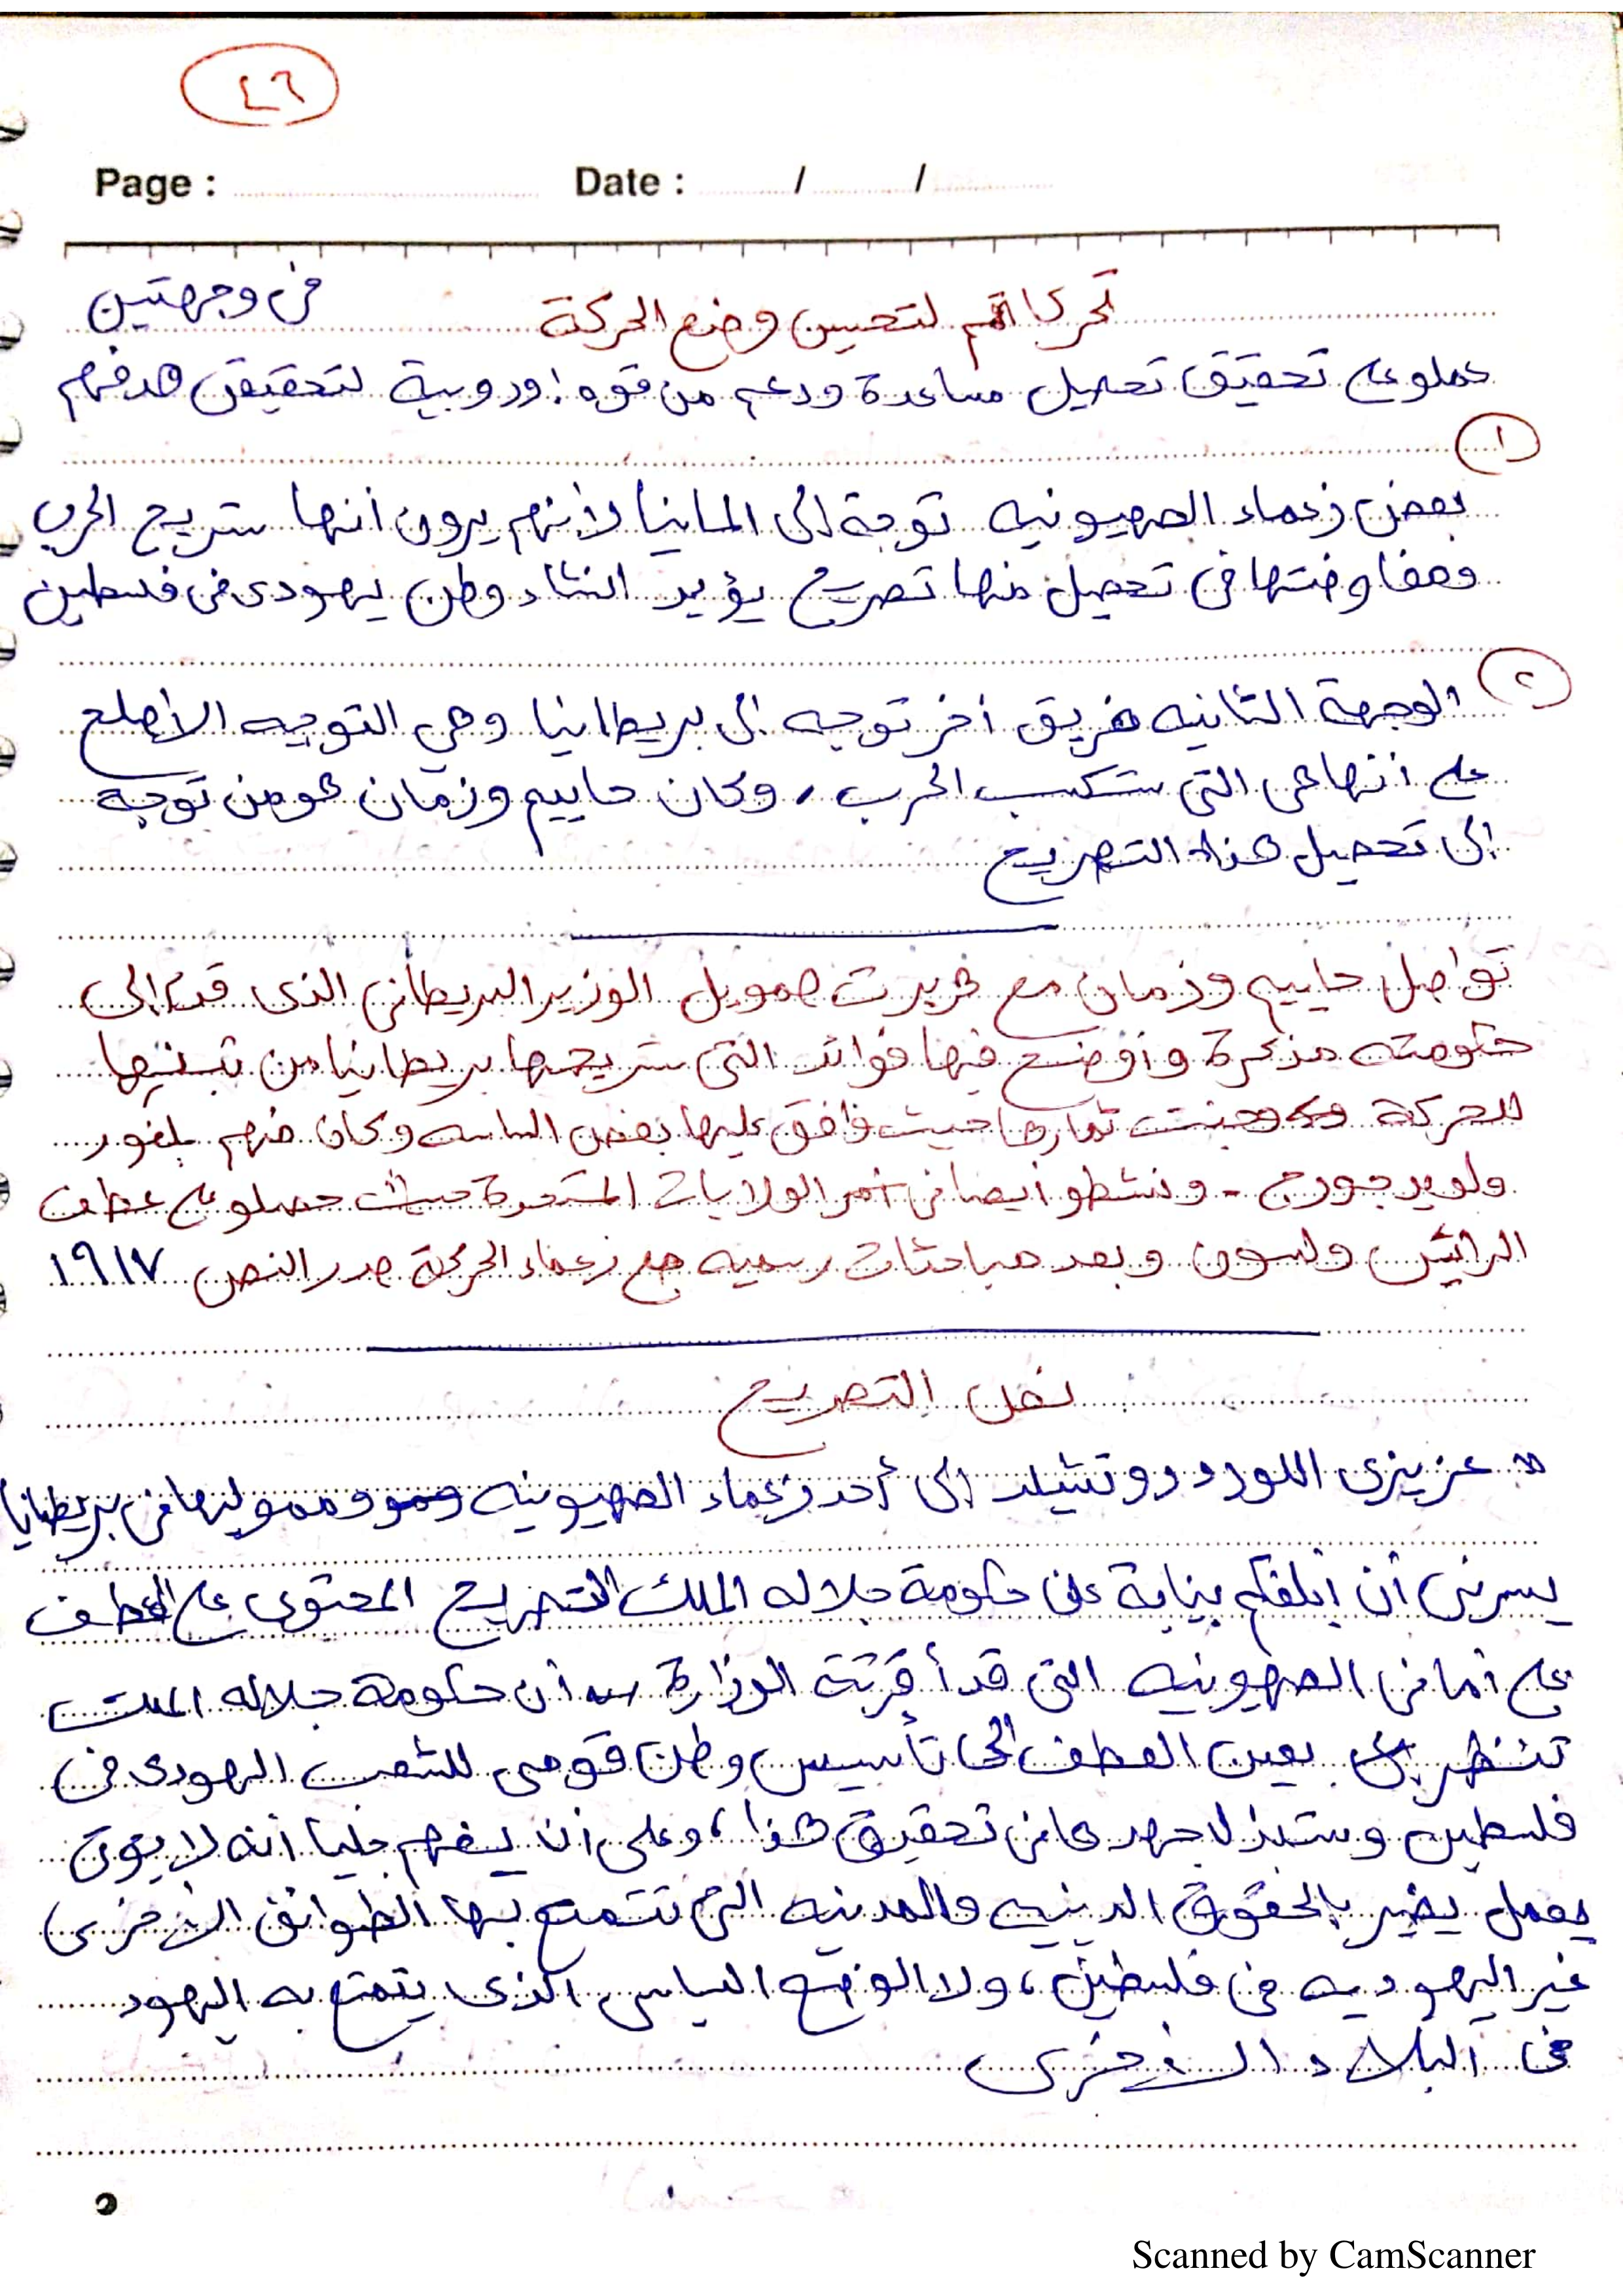 ٤٦
Page : Date : / /
تحركاتهم لتحسين وضع الحركة في وجهتين
عملو على تحقيق تحصيل مساعدة ودعم من قوه اوروبية لتحقيق هدفهم
١
بعض زعماء الصهيونيه توجة الى المانيا لأنهم يرون أنها ستربح الحرب
ومفاوضتها في تحصل منها تصريح يؤيد انشاء وطن يهودى في فلسطين
٢
الوجهة الثانيه فريق أخر توجه الى بريطانيا وهي التوجيه الأصلح
على أنها هى التى ستكسب الحرب، وكان حاييم وزمان هو من توجه
الى تحصيل هذا التصريح
تواصل حاييم وزمان مع هربرت صمويل الوزير البريطاني الذى قدم الى
حكومته مذكرة وأوضح فيها فوائد التى ستربحها بريطانيا من تبنيها
للحركة وجنت ثمارها حيث وافق عليها بعض الساسه وكان منهم بلفور
ولويد جورج - ونشطو أيضا في الولايات المتحدة حيث حصلو على عطف
الرائيس ولسون وبعد مباحثات رسميه مع زعماء الحركة صدر النص ١٩١٧
نص التصريح
عزيزى اللورد روتشيلد الى أحد زعماء الصهيونيه ومموليها في بريطانيا
يسرنى أن أبلغكم بنيابة عن حكومة جلاله الملك التصريح المحتوى على العطف
على أمانى الصهيونيه التى قد أقرتة الوزارة أن حكومة جلاله الملك
تنظر بعين العطف الى تأسيس وطن قومى للشعب اليهودى في
فلسطين وستبذل جهدها في تحقيق هذا، وعلى أن يفهم جليا أنه لا يؤتى
بعمل يضير بالحقوق الدينيه والمدنيه التى تتمتع بها الطوائف الأخرى
غير اليهوديه في فلسطين، ولا الوضع السياسى الذى يتمتع به اليهود
في البلاد الأخرى
Scanned by CamScanner